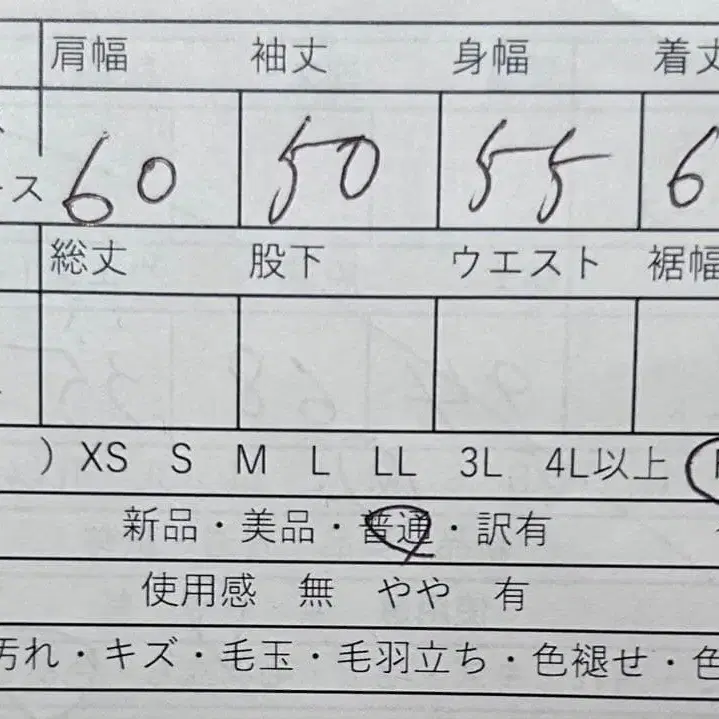 肩幅 袖丈 身幅 着丈
ス 60 50 55 6
総丈 股下 ウエスト 裾幅
) XS S M L LL 3L 4L以上
新品・美品・普通・訳有
使用感 無 やや 有
汚れ・キズ・毛玉・毛羽立ち・色褪せ・色